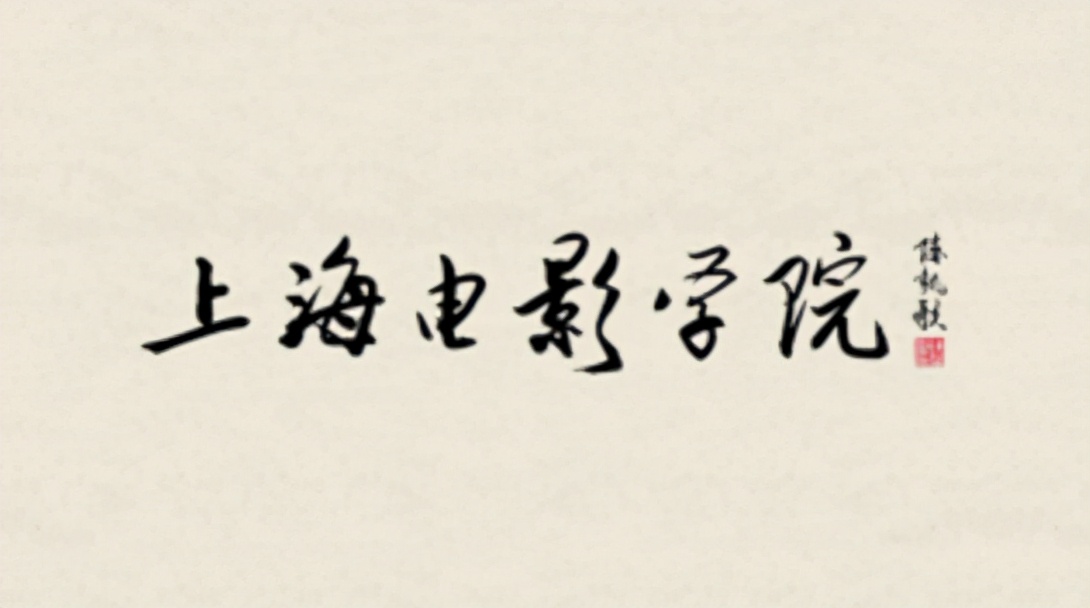 上海电影学院
陈凯歌